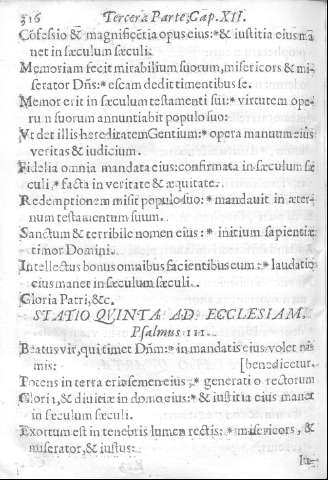 316 Tercera Parte, Cap. XII.
Cõfessio & magnificẽtia opus eius:* & iustitia eius ma
net in sæculum sæculi.
Memoriam fecit mirabilium suorum, misericors & mi-
serator Dñs:* escam dedit timentibus se.
Memor erit in sæculum testamenti sui:* virtutem ope-
rum suorum annuntiabit populo suo:
Vt det illis hereditatem Gentium:* opera manuum eius
veritas & iudicium.
Fidelia omnia mandata eius: confirmata in sæculum sæ
culi,* facta in veritate & æquitate.
Redemptionem misit populo suo:* mandauit in æter-
num testamentum suum.
Sanctum & terribile nomen eius:* initium sapientiæ
timor Domini.
Intellectus bonus omnibus facientibus eum:* laudatio
eius manet in sæculum sæculi.
Gloria Patri, &c.
STATIO QVINTA AD ECCLESIAM.
Psalmus 111.
Beatus vir, qui timet Dñm:* in mandatis eius volet nis
mis: [benedicetur.
Potens in terra erit semen eius,* generatio rectorum
Gloria, & diuitiæ in domo eius:* & iustitia eius manet
in sæculum sæculi.
Exortum est in tenebris lumen rectis:* misericors, &
miserator, & iustus:
Iu-